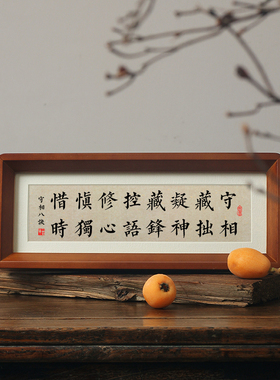 守相
藏拙
凝神
藏鋒
控語
修心
愼獨
惜時
守相八訣